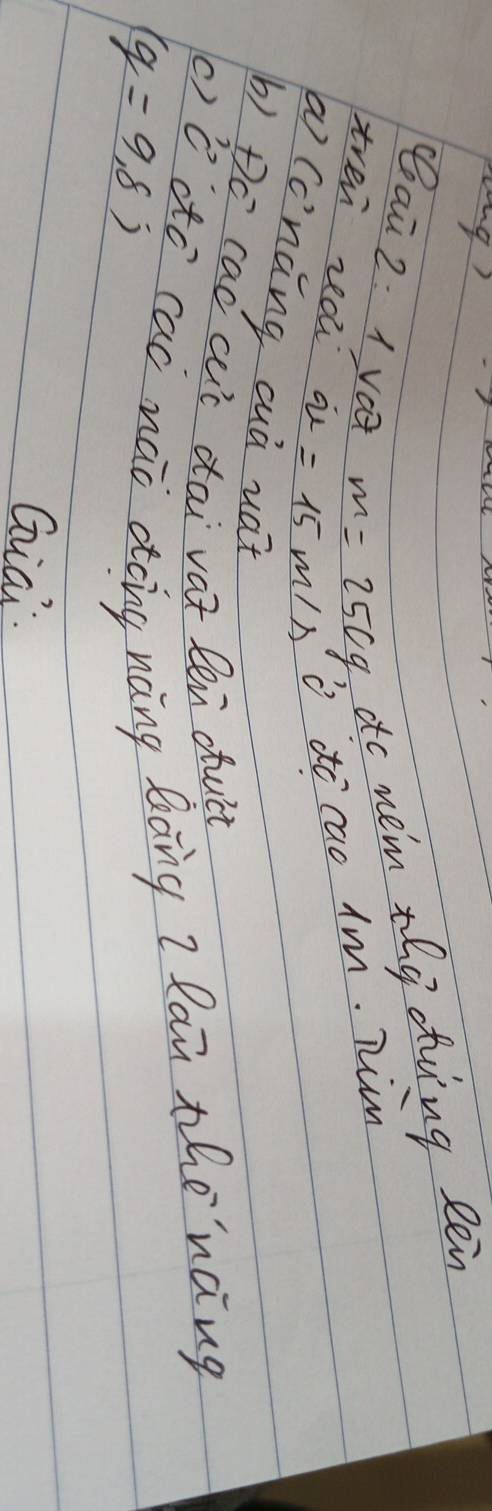 Câu 2: 1 vật m = 250g đc ném thẳg đứng lên
trên với v = 15 m/s ở độ cao 1m. Tìm
a) Cơ năng của vật
b) Độ cao cực đại vật lên được
c) Ở độ cao nào động năng bằng 2 lần thế năng
(g = 9,8)
Giải: